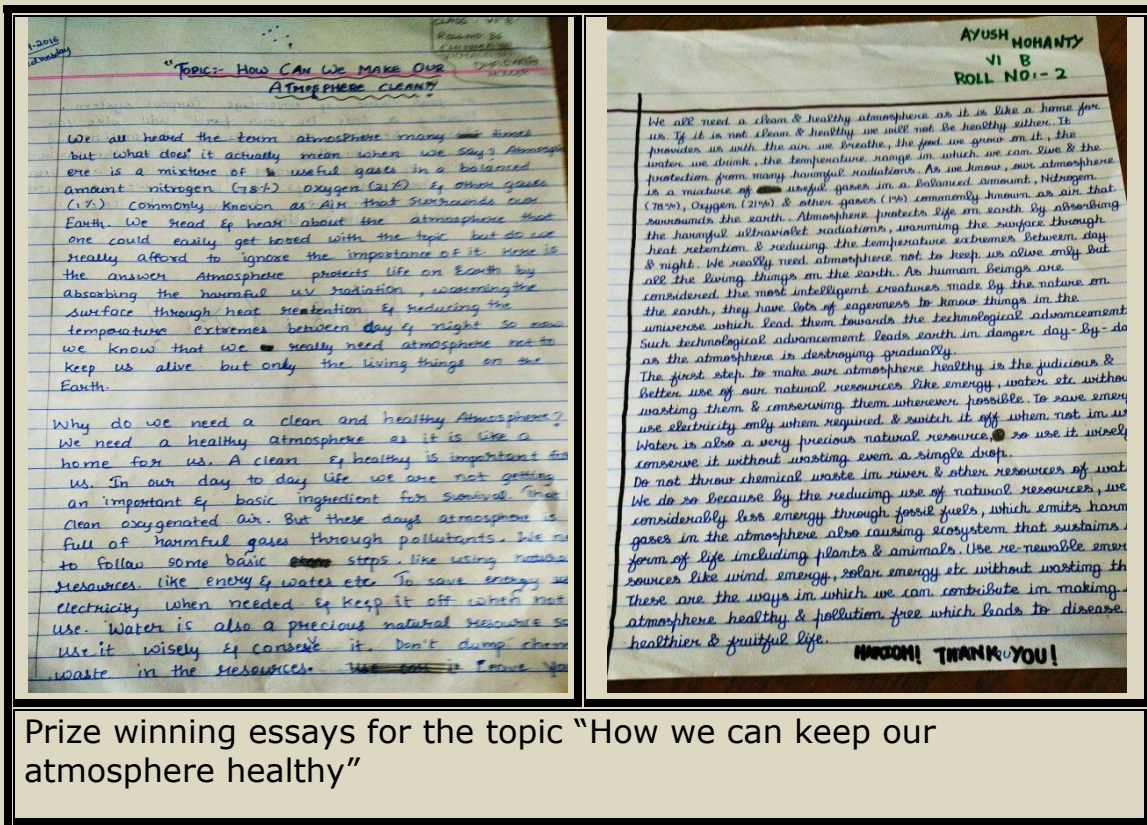 -2016
CLASS - VI B
"TOPIC:- HOW CAN WE MAKE OUR
ATMOSPHERE CLEAN"
We all heard the term atmosphere many times
but what does it actually mean when we say? Atmosph
ere is a mixture of useful gases in a balanced
amount nitrogen (78%) oxygen (21%) & other gases
(1%) commonly known as Air that surrounds our
Earth. We read & hear about the atmosphere that
one could easily get bored with the topic but do we
really afford to ignore the importance of it Here is
the answer Atmosphere protects life on Earth by
absorbing the harmful uv radiation, warming the
surface through heat retention & reducing the
temperature extremes between day & night so now
we know that we really need atmosphere not to
keep us alive but only the living things on the
Earth.
Why do we need a clean and healthy Atmosphere?
We need a healthy atmosphere as it is like a
home for us. A clean & healthy is important for
us. In our day to day life we are not getting
an important & basic ingredient for survival that
clean oxygenated air. But these days atmosphere is
full of harmful gases through pollutants. We n
to follow some basic steps. like using natura
resources. like enery & water etc. To save energy us
electricity when needed & keep it off when not
use. Water is also a precious natural resource so
use it wisely & conserve it. Don't dump chem
waste in the resources.
AYUSH MOHANTY
VI B
ROLL NO:- 2
We all need a clean & healthy atmosphere as it is like a home for
us. If it is not clean & healthy we will not be healthy either. It
provides us with the air we breathe, the food we grow on it, the
water we drink, the temperature range in which we can live & the
protection from many harmful radiations. As we know, our atmosphere
is a mixture of useful gases in a balanced amount, Nitrogen
(78%), Oxygen (21%) & other gases (1%) commonly known as air that
surrounds the earth. Atmosphere protects life on earth by absorbing
the harmful ultraviolet radiations, warming the surface through
heat retention & reducing the temperature extremes between day
& night. We really need atmosphere not to keep us alive only but
all the living things on the earth. As human beings are
considered the most intelligent creatures made by the nature on
the earth, they have lots of eagerness to know things in the
universe which lead them towards the technological advancement
Such technological advancement leads earth in danger day-by-da
as the atmosphere is destroying gradually.
The first step to make our atmosphere healthy is the judicious &
better use of our natural resources like energy, water etc withou
wasting them & conserving them wherever possible. To save ener
use electricity only when required & switch it off when not in us
Water is also a very precious natural resource, so use it wisely
conserve it without wasting even a single drop.
Do not throw chemical waste in river & other resources of wat
We do so because by the reducing use of natural resources, we
considerably less energy through fossil fuels, which emits harm
gases in the atmosphere also causing ecosystem that sustains
form of life including plants & animals. Use re-newable ener
sources like wind energy, solar energy etc without wasting th
These are the ways in which we can contribute in making
atmosphere healthy & pollution free which leads to disease
healthier & fruitful life.
HARIOM! THANK YOU!
Prize winning essays for the topic “How we can keep our
atmosphere healthy”